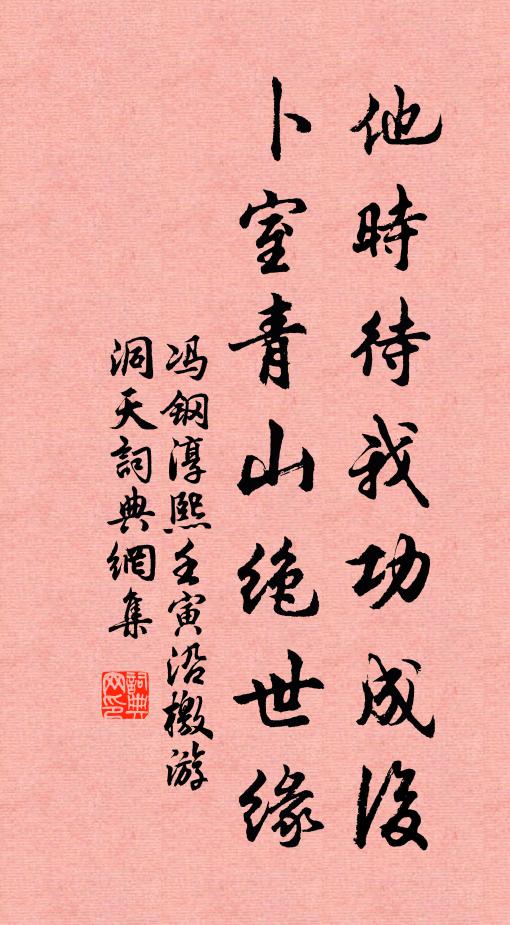 他時待我功成後
卜室青山绝世缘
冯鋼淳熙壬寅沿檄游
洞天詞典網集
詞典網印